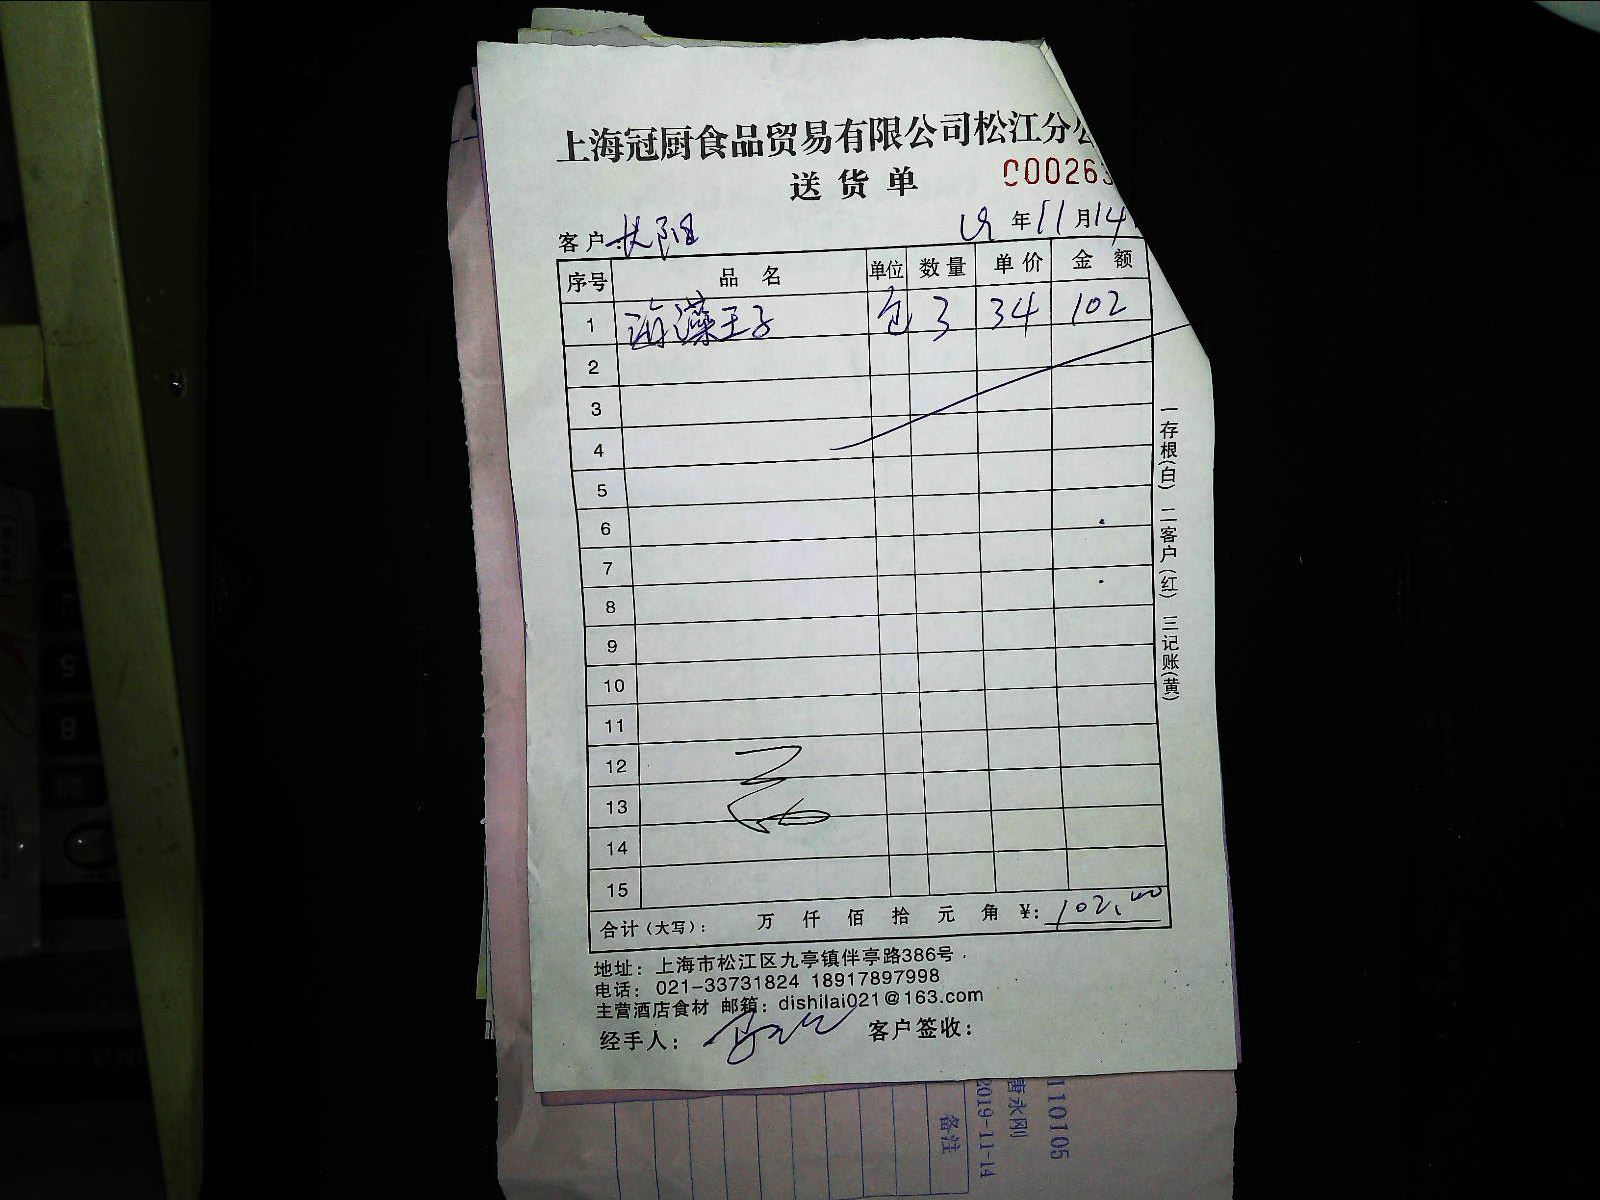 上海冠厨食品贸易有限公司松江分公
送货单
00026
客户 长阳 19年11月14
序号 品名 单位 数量 单价 金额
1 海藻王子 包 3 34 102
2
3
4
5
6
7
8
9
10
11
12
13
14
15
合计(大写): 万 仟 佰 拾 元 角 ¥: 102.00
地址: 上海市松江区九亭镇伴亭路386号
电话: 021-33731824 18917897998
主营酒店食材 邮箱: dishilai021@163.com
经手人: 客户签收:
一存根(白) 二客户(红) 三记账(黄)
110105
唐永刚
2019-11-14
备注